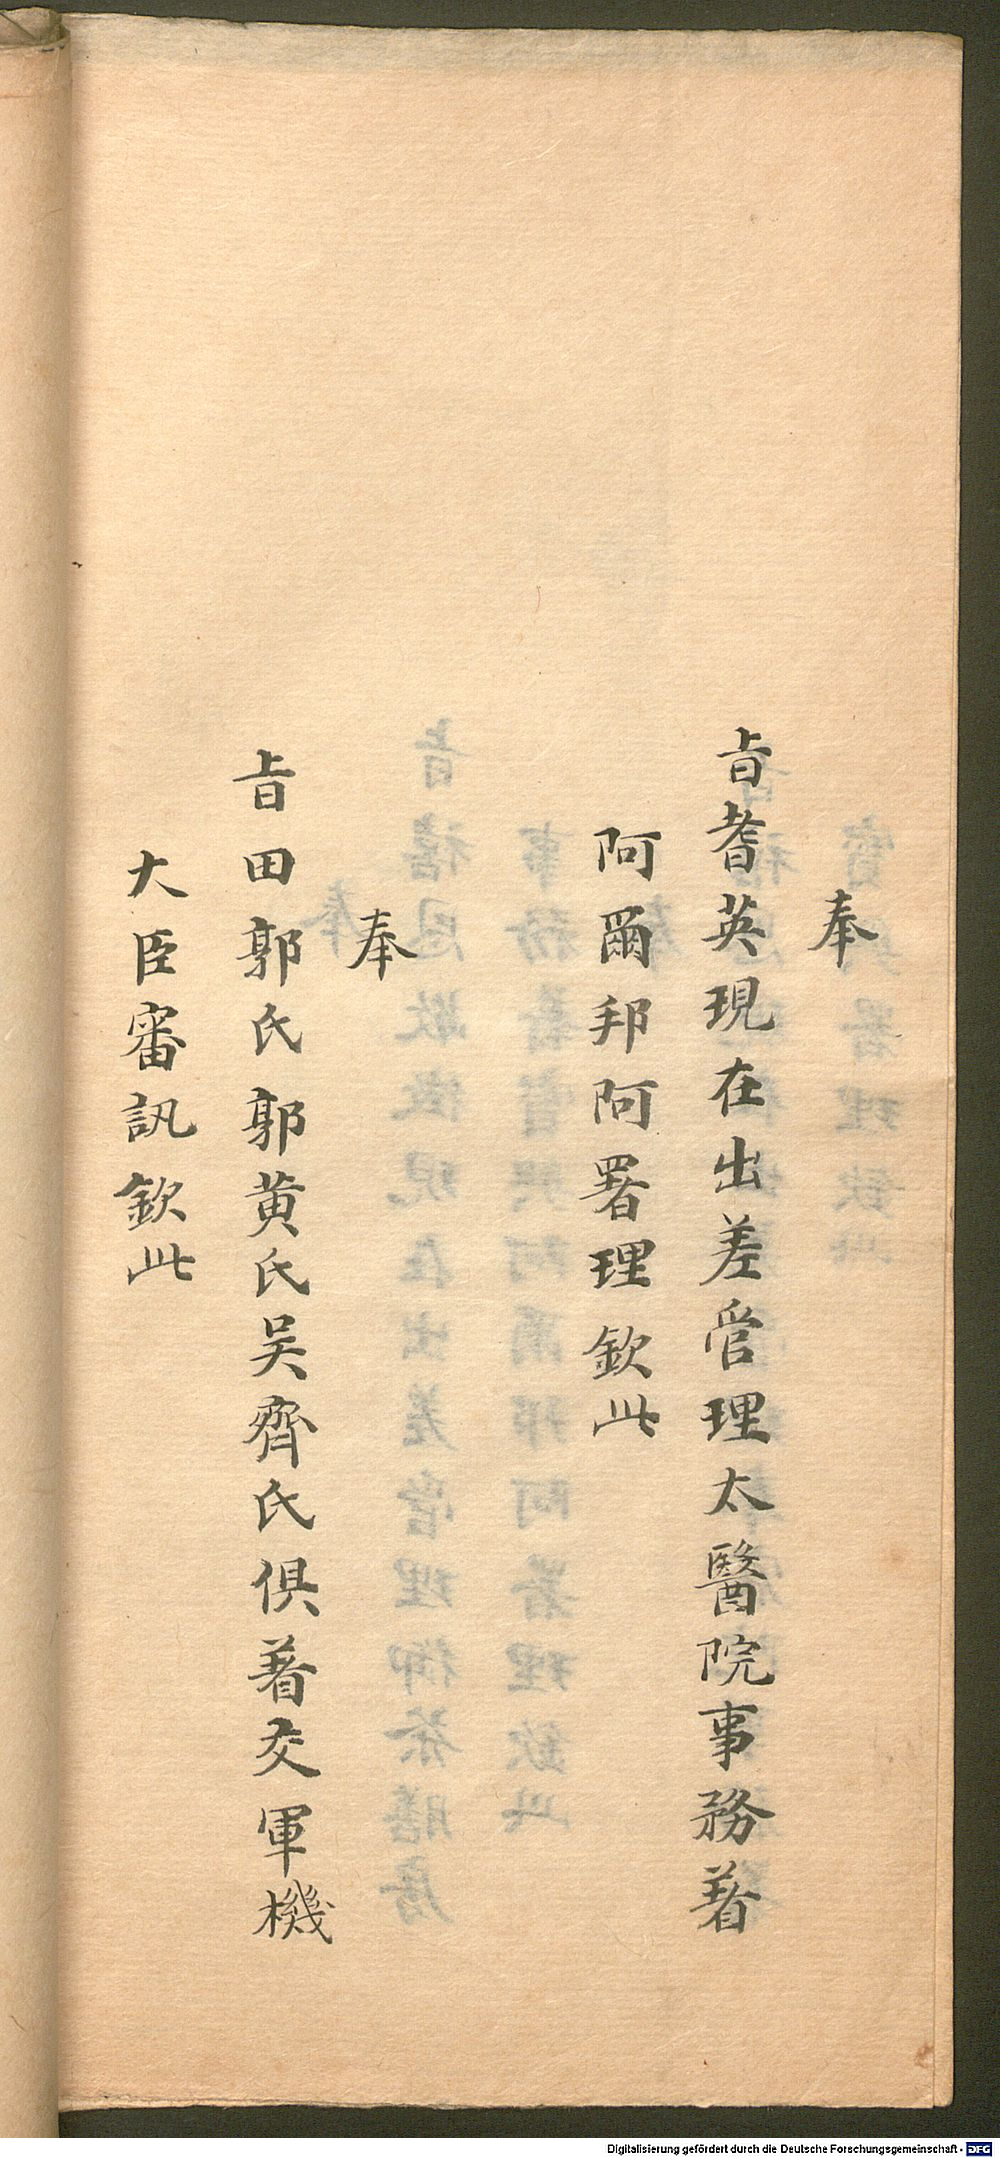 奉
旨耆英現在出差管理太醫院事務着
阿爾邦阿署理欽此
奉
旨田郭氏郭黄氏吴齊氏俱着交軍機
大臣審訊欽此
Digitalisierung gefördert durch die Deutsche Forschungsgemeinschaft - DFG